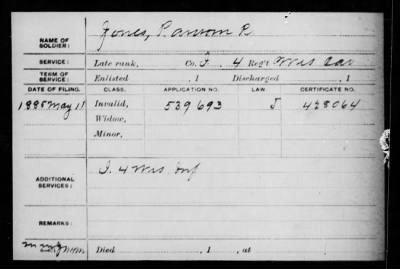 NAME OF SOLDIER: Jones, Ransom R
SERVICE: Late rank, Co. I, 4 Reg't Wis Cav
TERM OF SERVICE: Enlisted , 1 Discharged , 1
DATE OF FILING. CLASS. APPLICATION NO. LAW. CERTIFICATE NO.
1885 May 11 Invalid, 539693 J 428064
Widow,
Minor,
ADDITIONAL SERVICES: I. 4 Wis. Inf
REMARKS:
Died , 1 , at